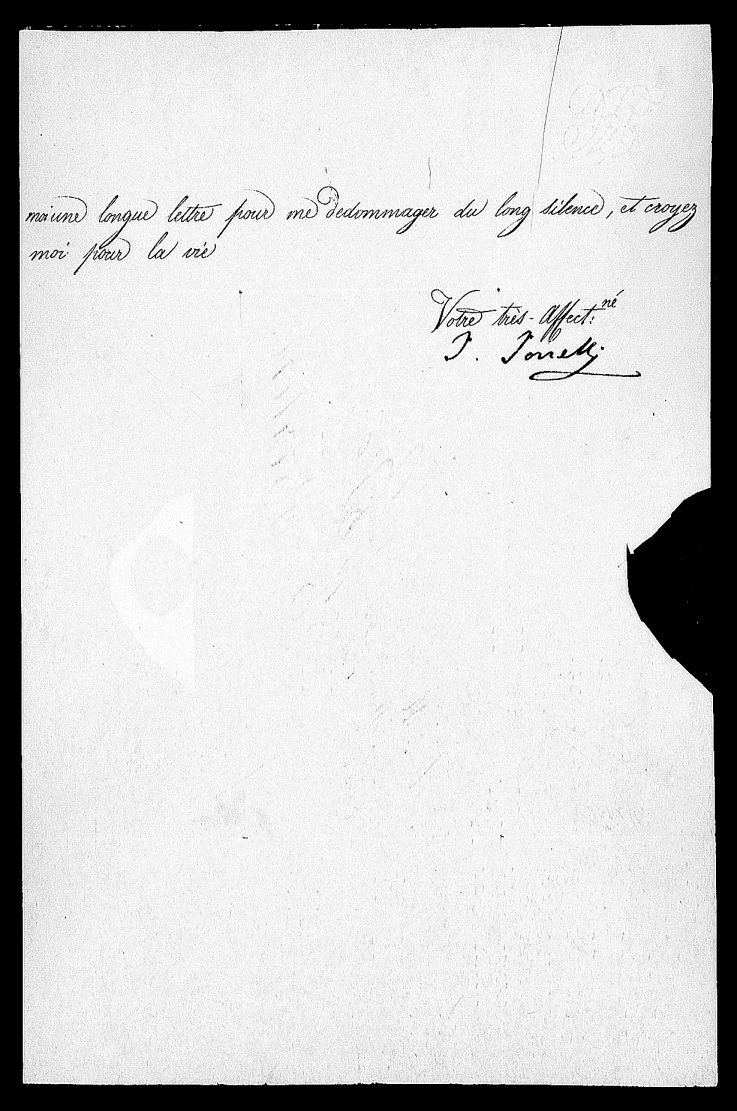 moi une longue lettre pour me dedommager du long silence, et croyez
moi pour la vie
Votre très-affect:né